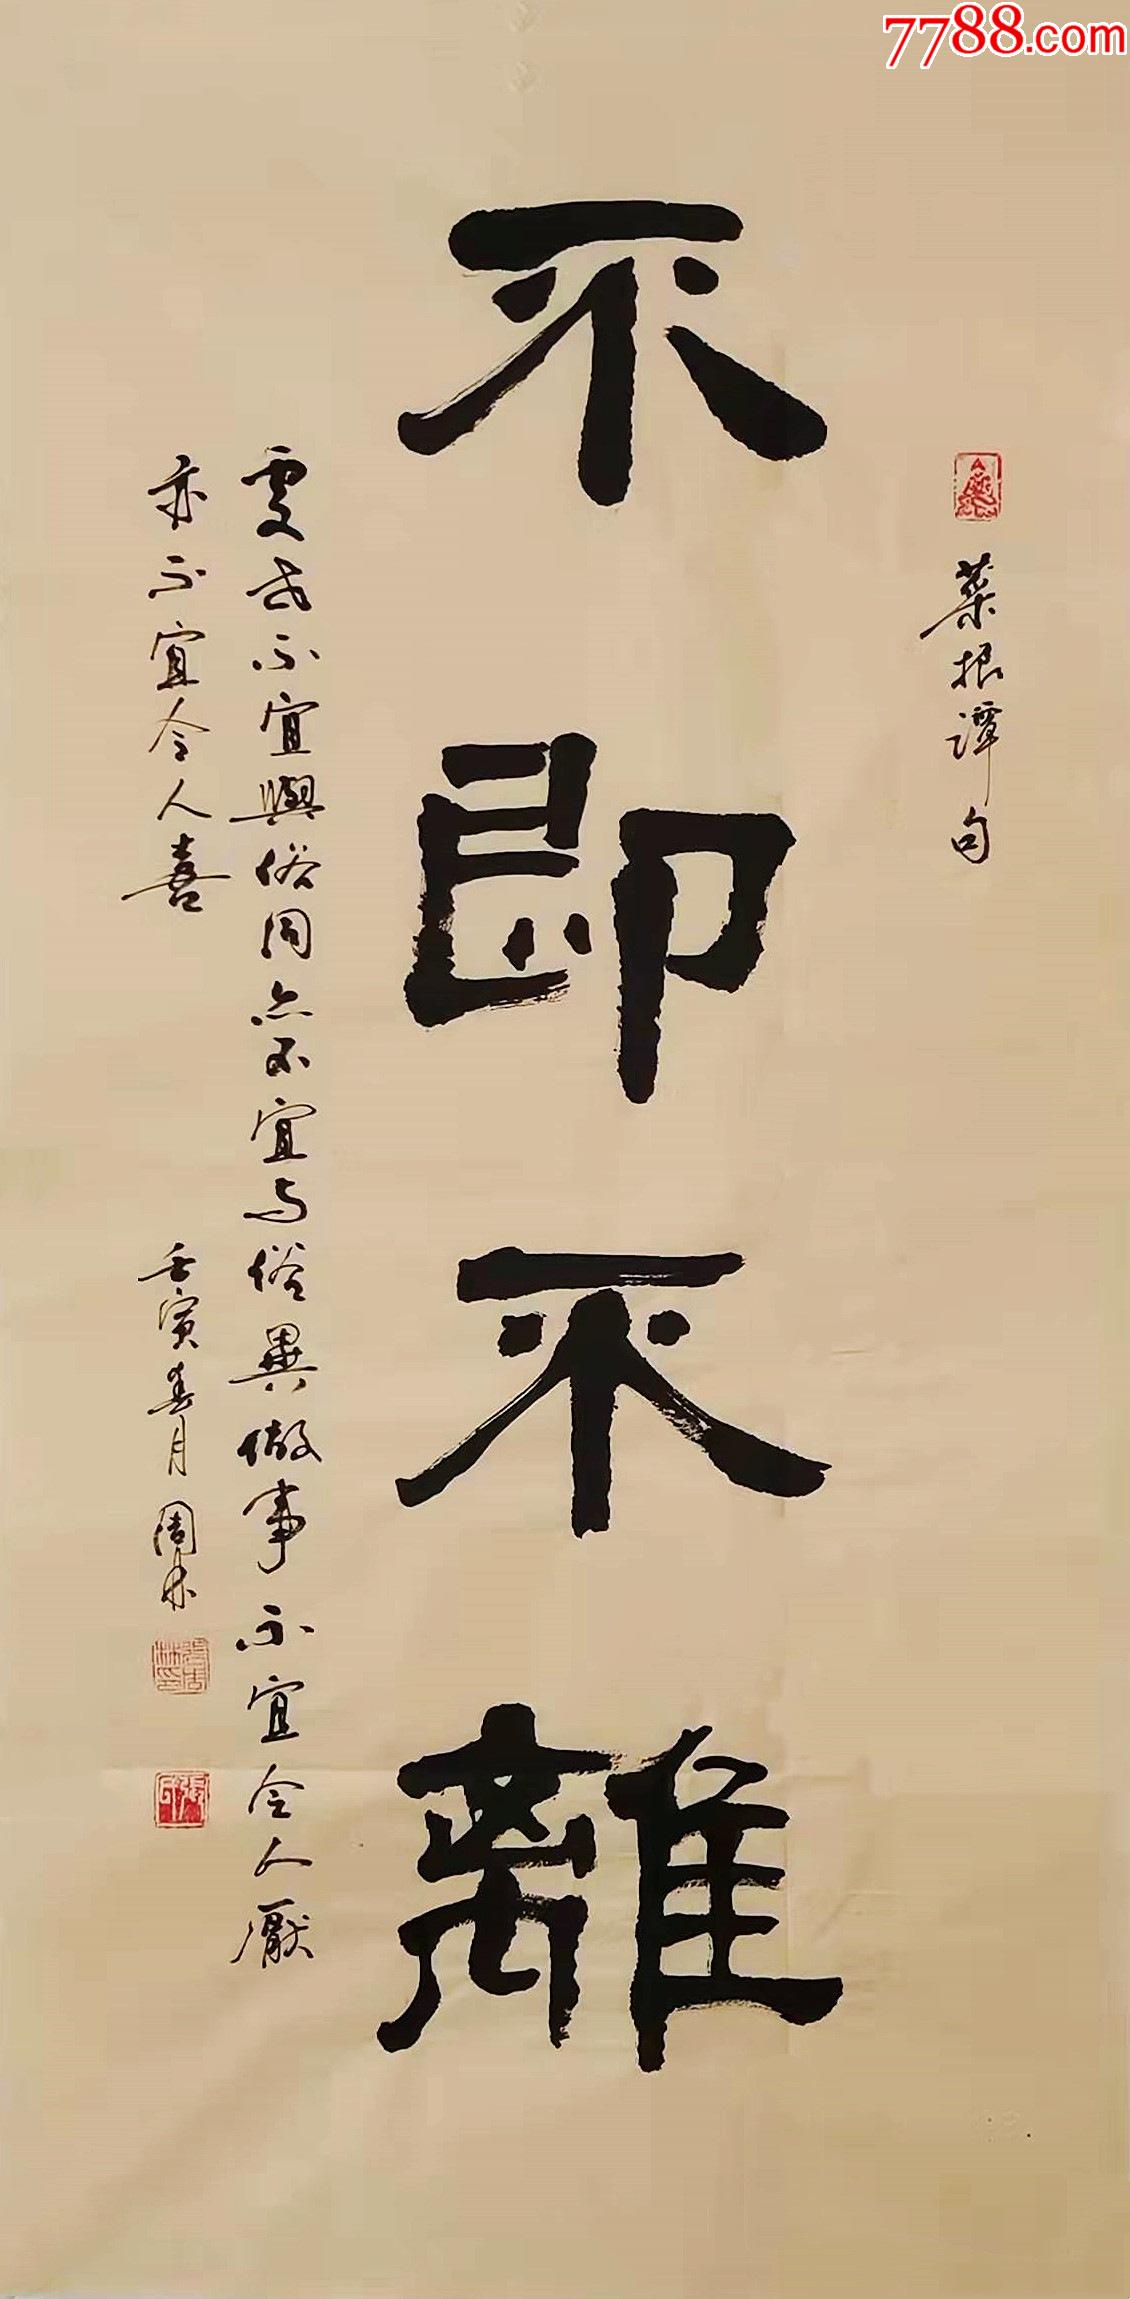 7788.com
菜根譚句
不即不離
處世不宜與俗同亦不宜与俗異做事不宜令人厭
亦不宜令人喜
壬寅春月周林